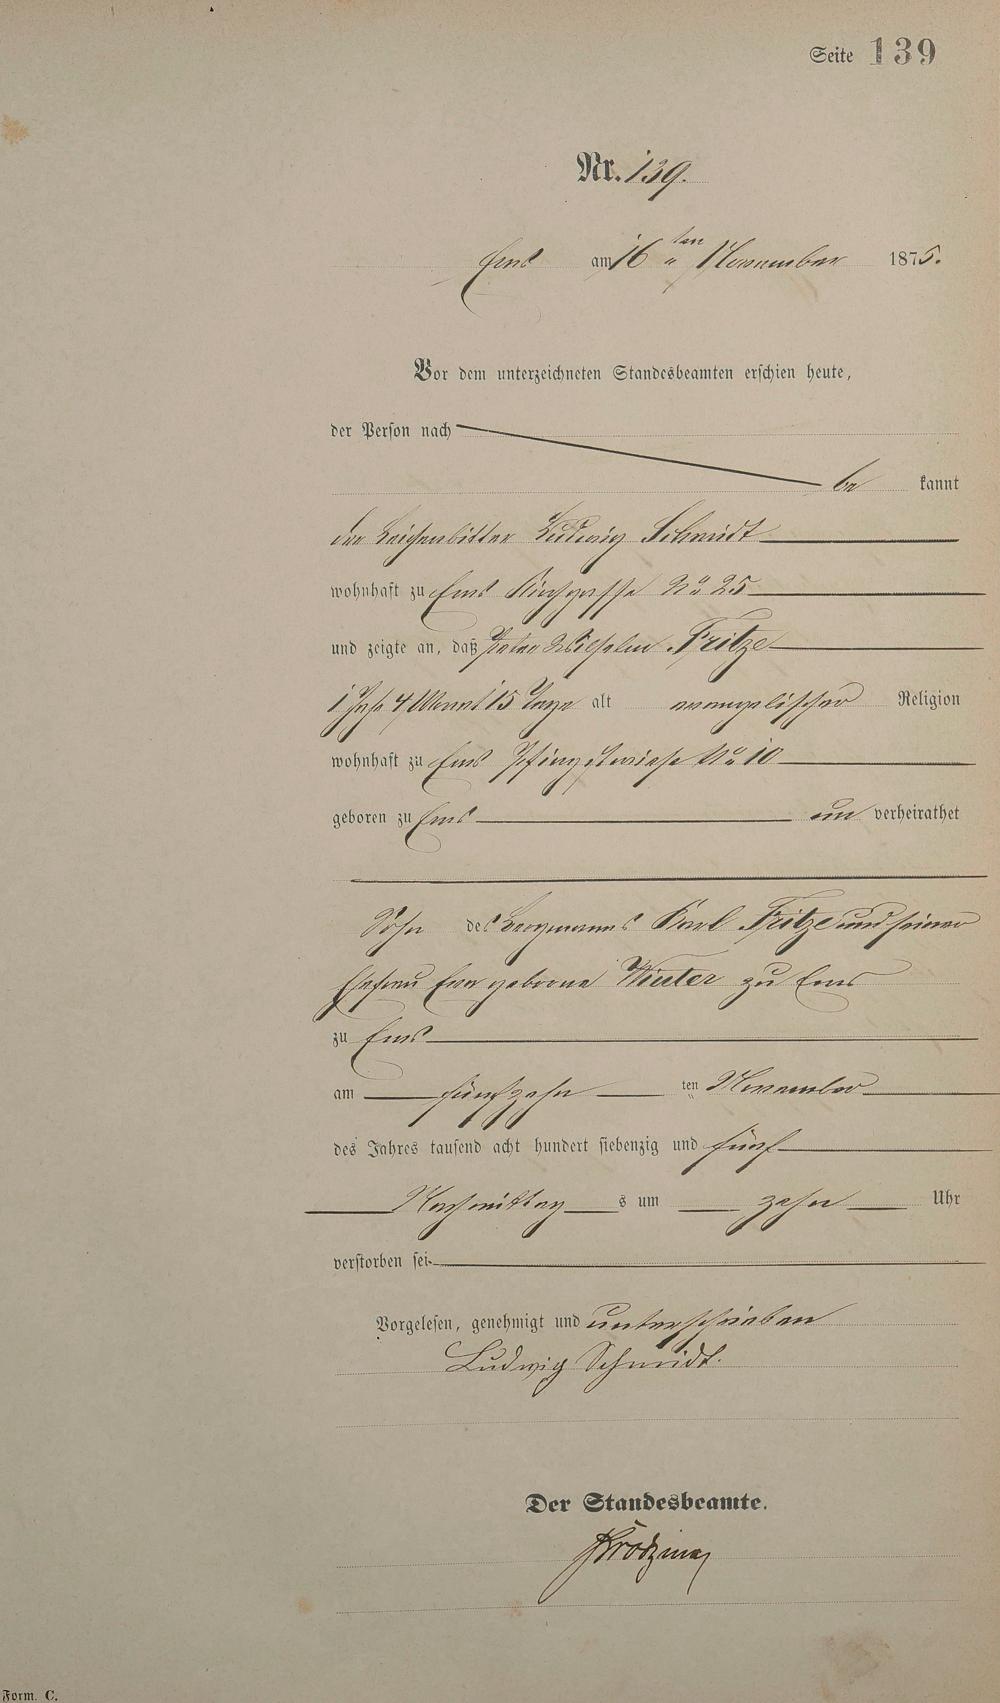 Seite 139
Nr. 139.
Ems am 16 ten November 1875.
Vor dem unterzeichneten Standesbeamten erschien heute,
der Person nach
be kannt
der Leichenbitter Ludwig Schmidt
wohnhaft zu Ems Kirchgasse No 25
und zeigte an, daß Peter Wilhelm Fritze
1 Jahr 4 Monat 15 Tage alt evangelischer Religion
wohnhaft zu Ems Pfingstwiese No 10
geboren zu Ems un verheirathet
Sohn des Bergmanns Karl Fritze und seiner
Ehefrau Eva geborne Winter zu Ems
zu Ems
am fünfzehn ten November
des Jahres tausend acht hundert siebenzig und fünf
Nachmittag s um zehn Uhr
verstorben sei
Vorgelesen, genehmigt und unterschrieben
Ludwig Schmidt.
Der Standesbeamte.
Form. C.